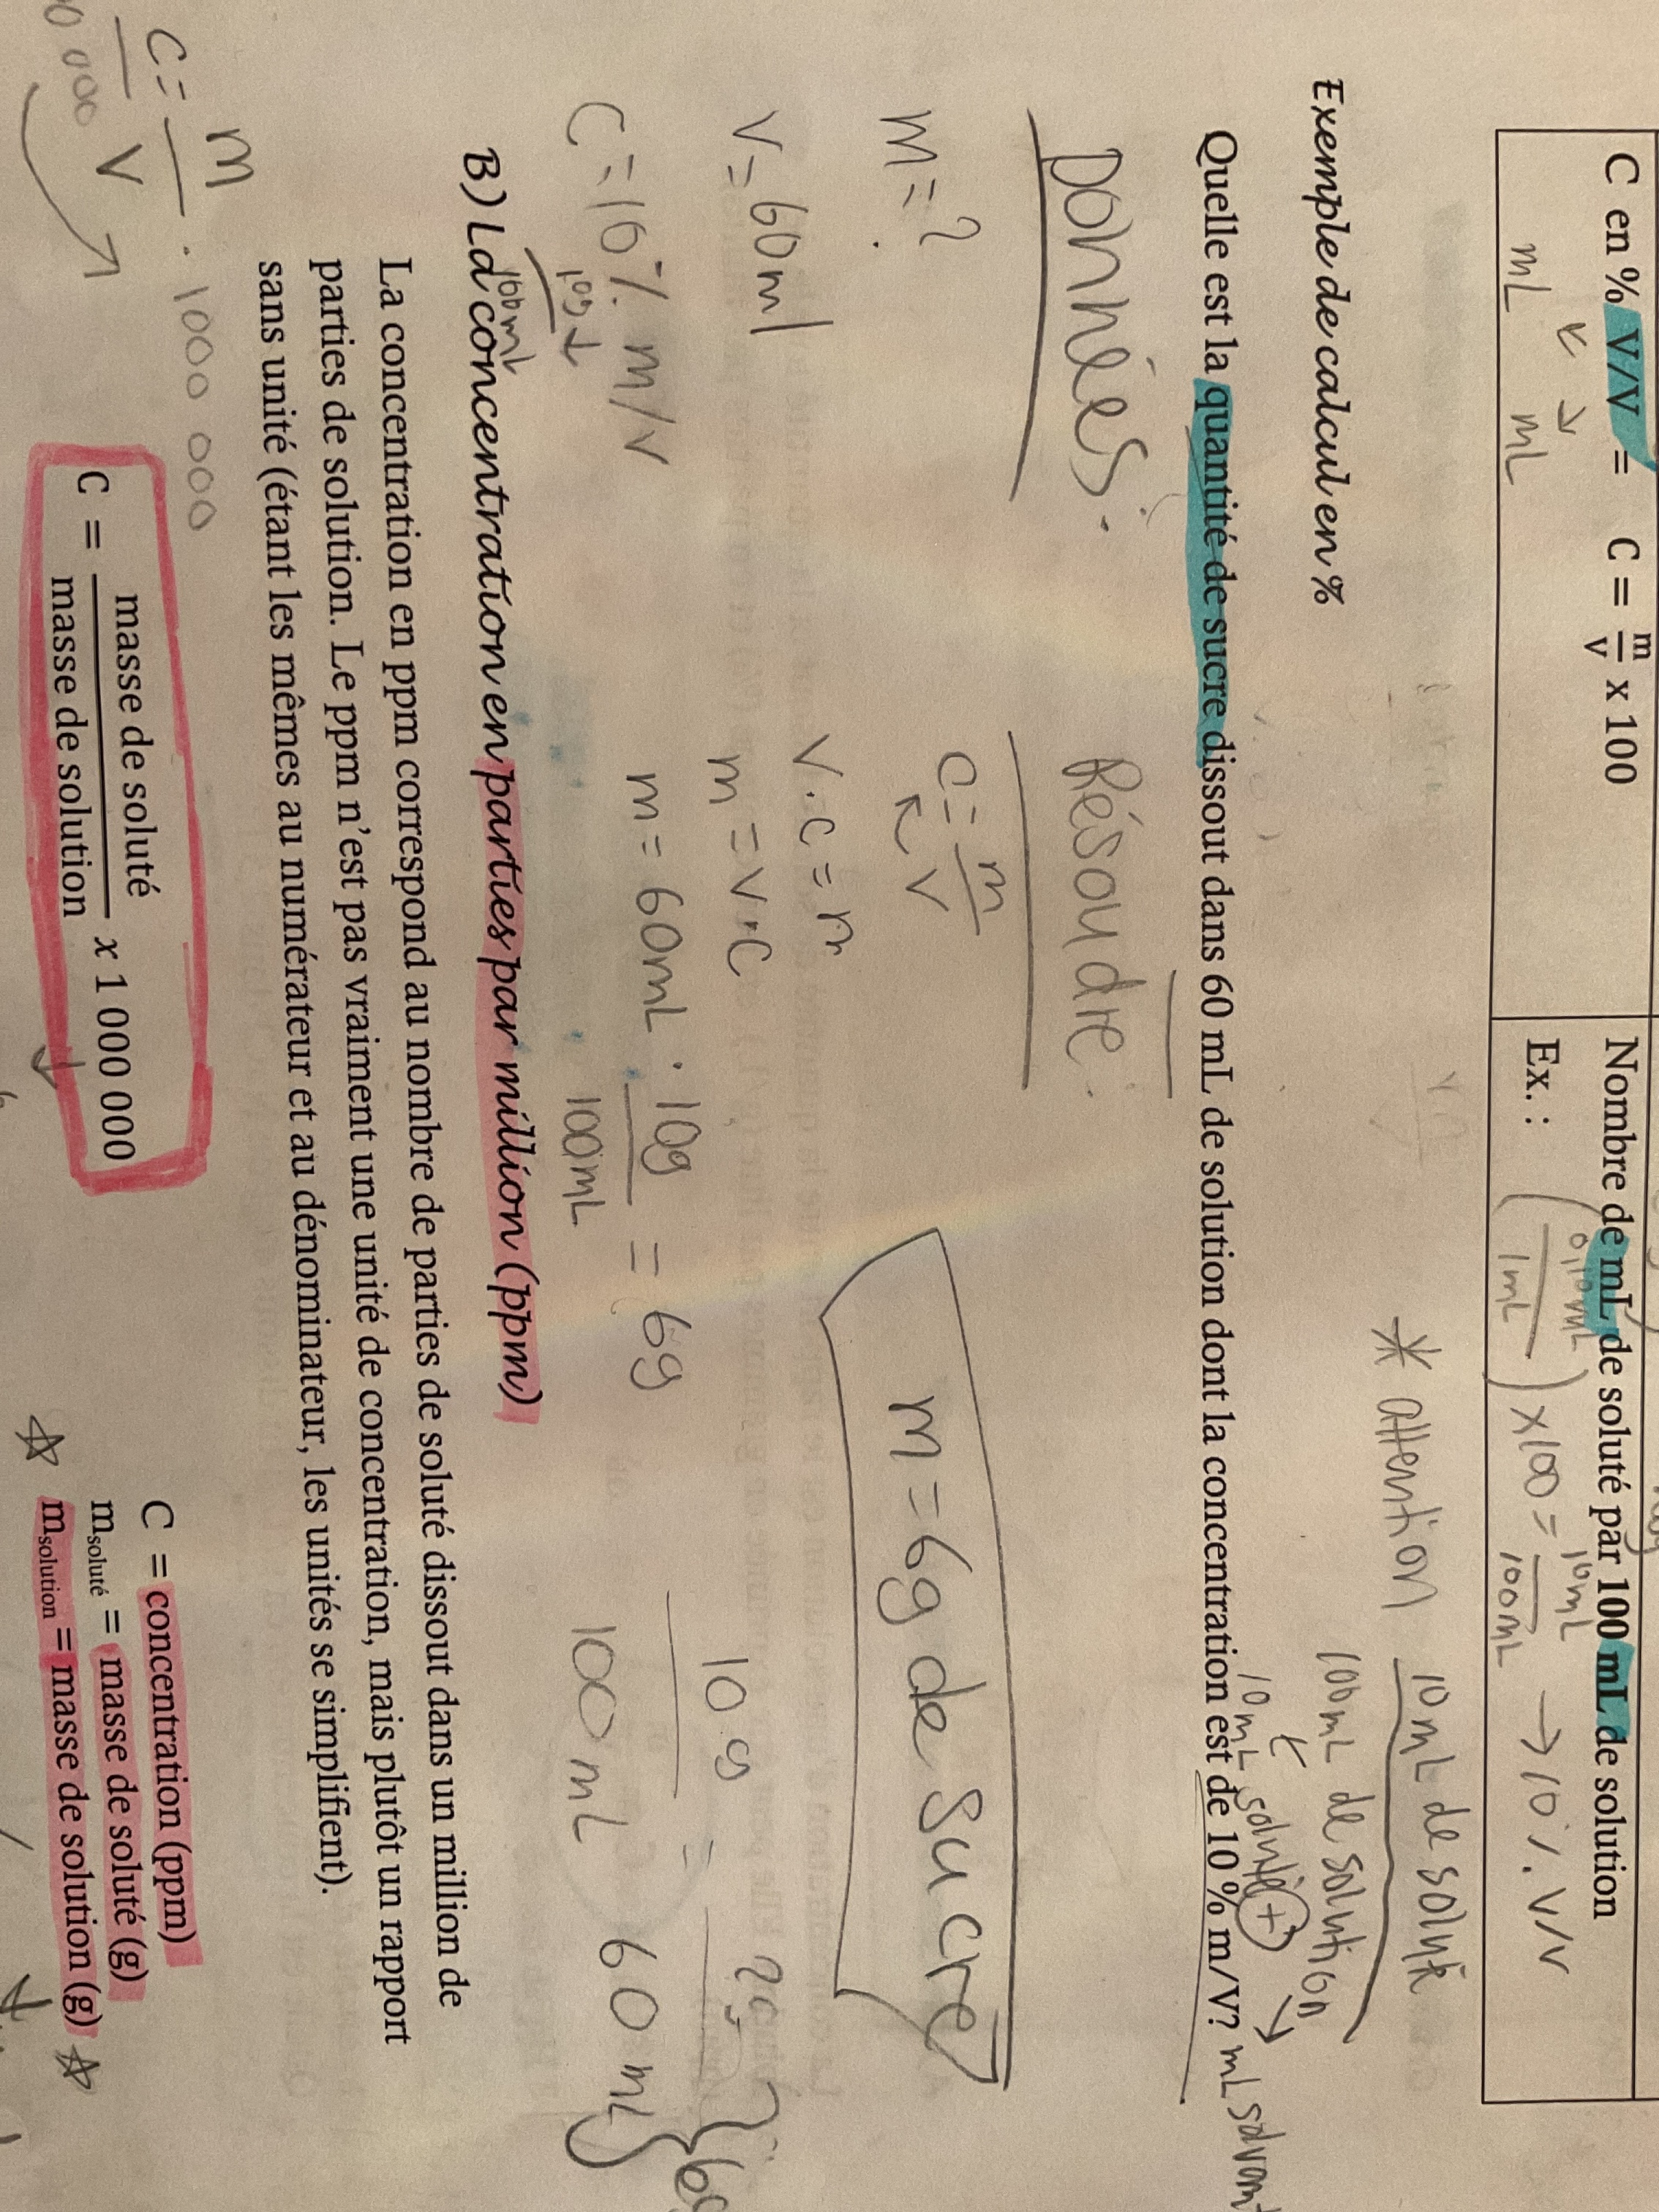 C en % V/V = C = m/V x 100
mL mL
Nombre de mL de soluté par 100 mL de solution
Ex. : (0,10mL / 1mL) x100 = 10mL / 100mL → 10% V/V
* attention 10mL de soluté
100mL de solution
10mL soluté + mL solvant
Exemple de calcul en %
Quelle est la quantité de sucre dissout dans 60 mL de solution dont la concentration est de 10 % m/V?
Donnés:
m = ?
V = 60ml
C = 10% m/v
10g
100mL
Résoudre:
C = m/V
V·C = m
m = V·C
m = 60mL · 10g / 100mL = 6g
m = 6g de sucre
10g / 100mL = ? / 60mL
B) La concentration en parties par million (ppm)
La concentration en ppm correspond au nombre de parties de soluté dissout dans un million de
parties de solution. Le ppm n'est pas vraiment une unité de concentration, mais plutôt un rapport
sans unité (étant les mêmes au numérateur et au dénominateur, les unités se simplifient).
C = m/V · 1000 000
C = masse de soluté / masse de solution x 1 000 000
C = concentration (ppm)
msoluté = masse de soluté (g)
msolution = masse de solution (g)